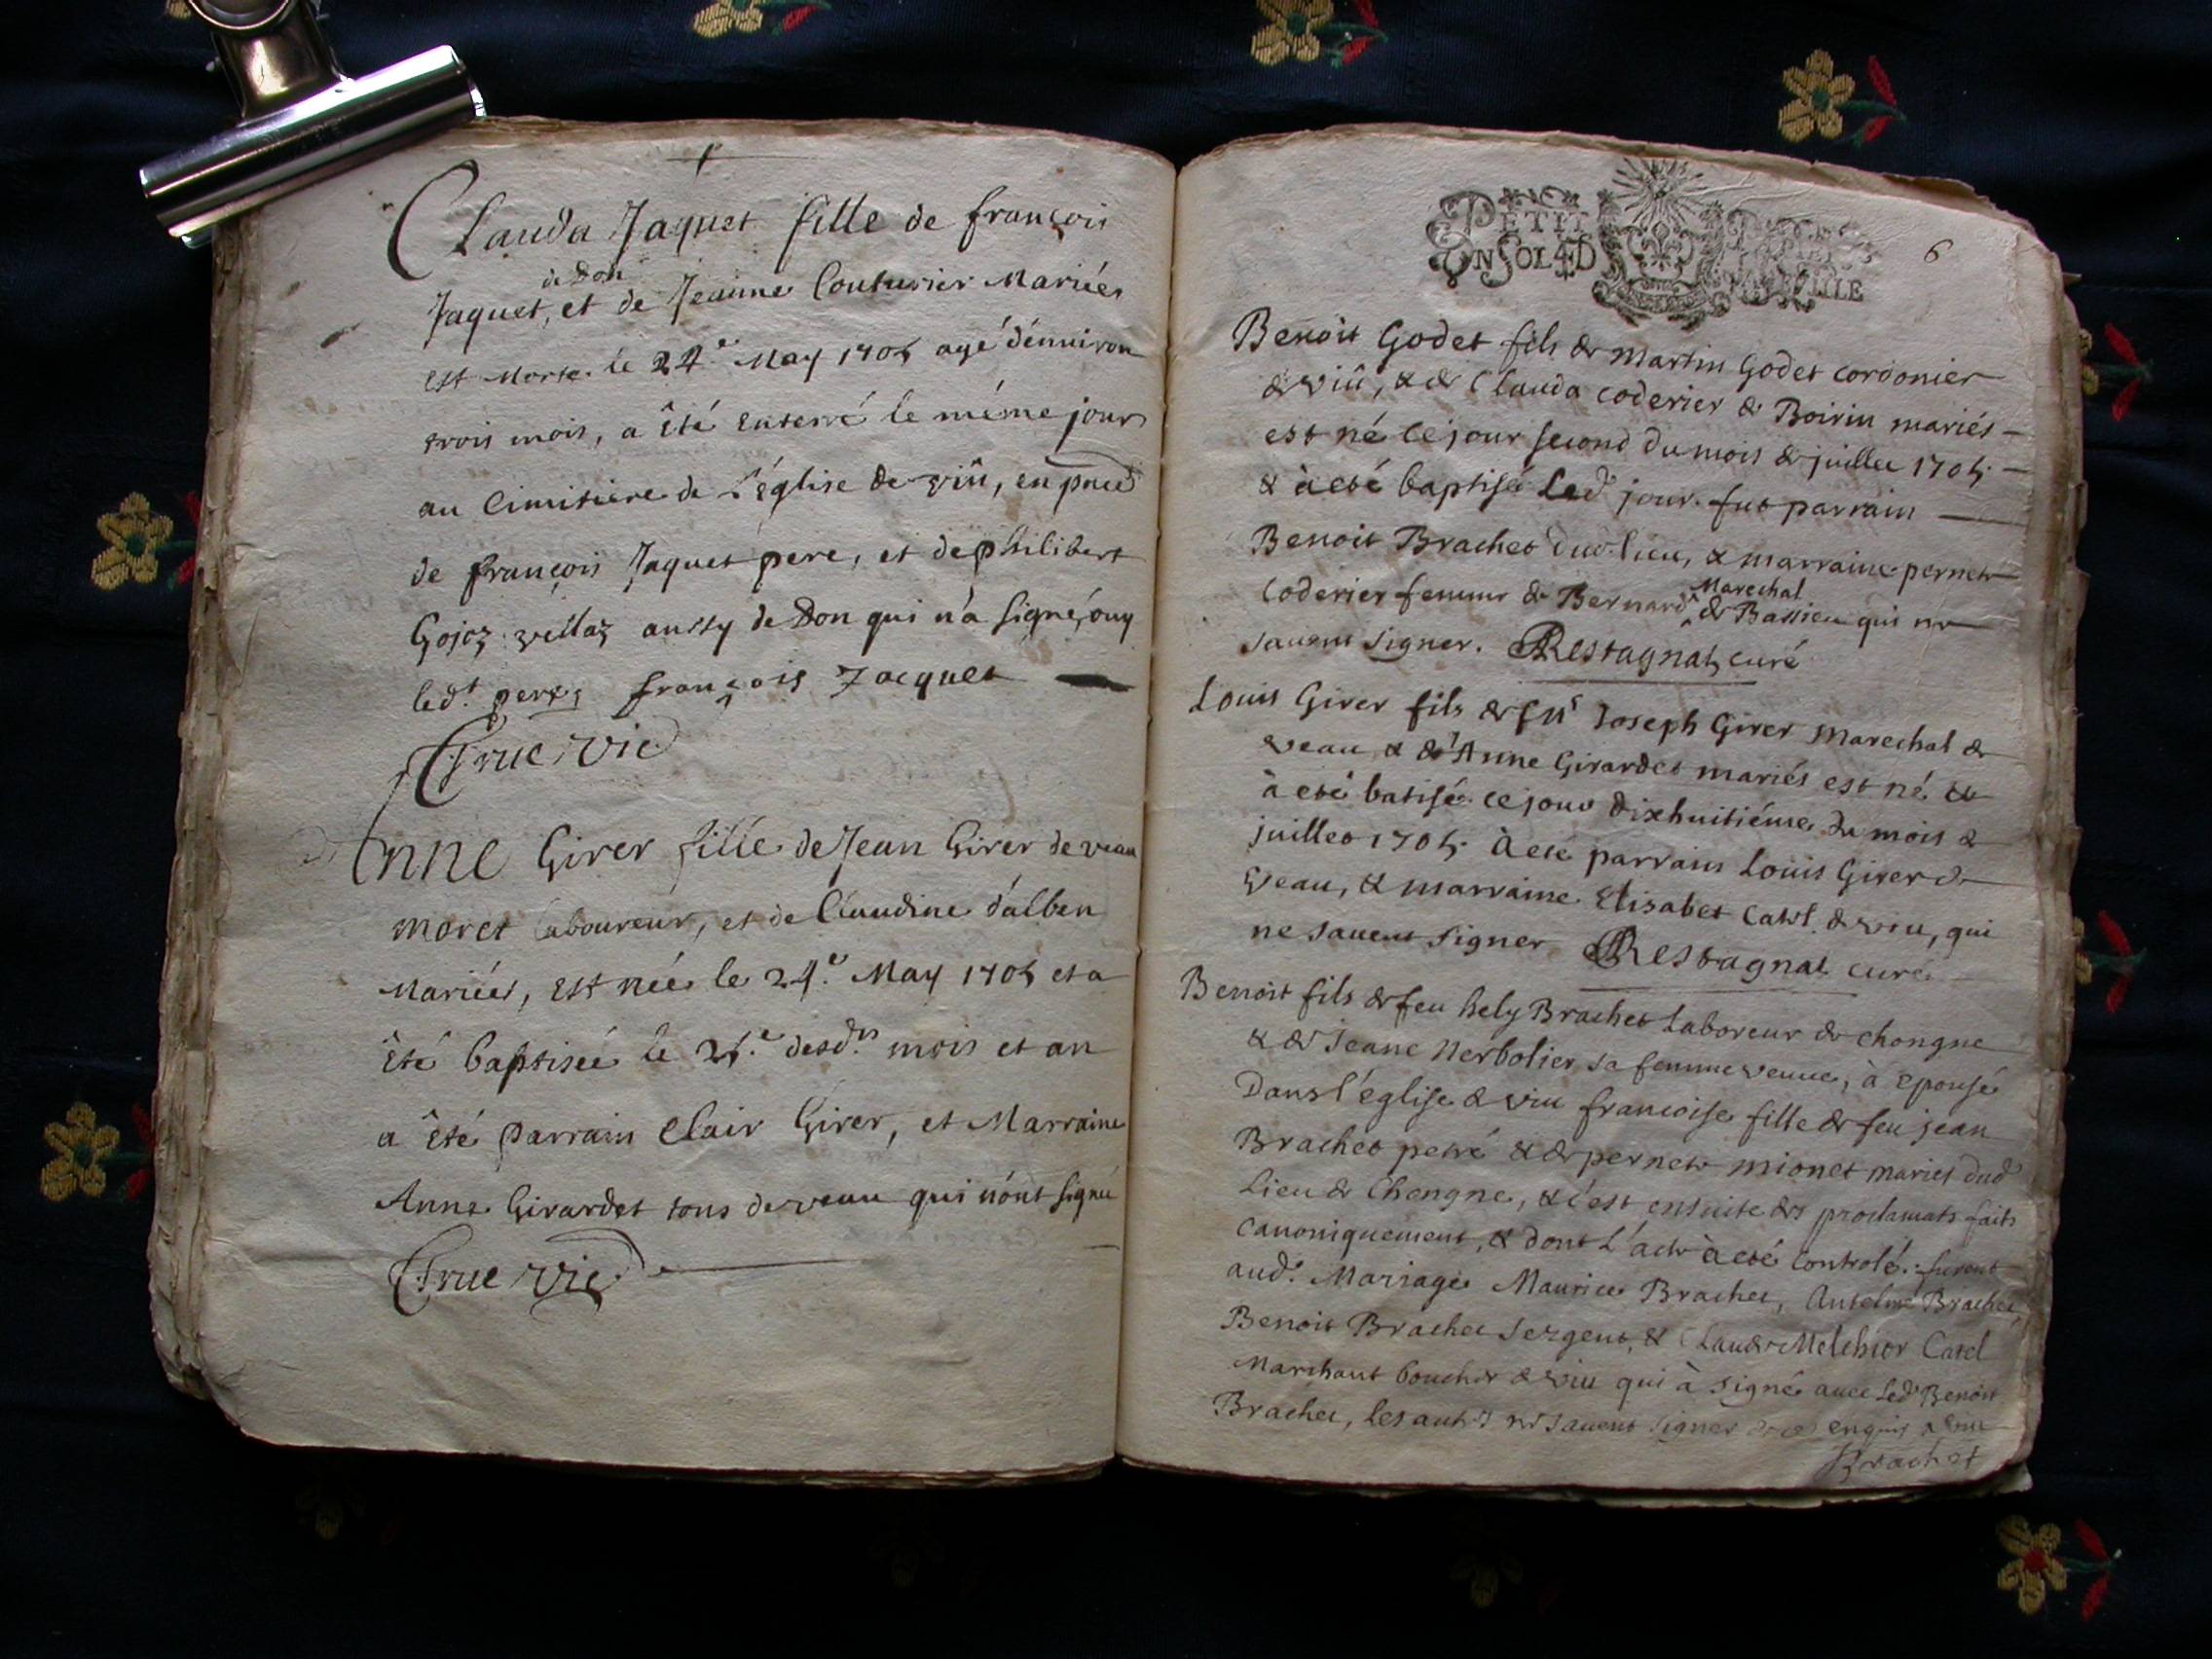 Clauda Jaquet fille de françois
de Don
Jaquet, et de Jeanne Couturier Mariés
est Morte le 24.e May 1705 agé d'énuiron
trois mois, a êté enterré le même jour
au Cimitiere de l'église de viû, en pnce
de françois Jaquet pere, et de philibert
Gojoz vellaz aussy de Don qui n'a signé, ouy
led.t pere, françois Jacquet
Truc vic
Anne Girer fille de Jean Girer de veau
moret laboureur, et de Claudine d'alben
Mariés, est née le 24.e May 1705 et a
êté baptisée le 25.e desd.ts mois et an
a êté parrain Clair Girer, et Marraine
Anne Girardet tous de veau qui n'ont signé
Truc vic
PETIT
EN SOL 4 D
6
Benoit Godet fils de Martin Godet cordonier
de viû, & de Clauda Coderier de Boirin mariés
est né ce jour second du mois de juillet 1705.
& à eté baptisé led.t jour. fut parrain
Benoit Brachet dud. lieu, & marraine pernete
Marechal
Coderier femme de Bernard de Bassieu qui ne
sauent signer. Restagnat, curé
Louis Girer fils de Joseph Girer Marechal de
veau & d'Anne Girardet mariés est né &
à eté batisé ce jour dixhuitiéme du mois de
juillet 1705. à eté parrain Louis Girer de
veau, & marraine Elisabet Catel de viu, qui
ne sauent signer Restagnat curé
Benoit fils de feu hely Brachet Laboreur de Chongne
& de Jeane Nerbolier sa femme veuue, à epousé
Dans l'église de viu francoise fille de feu jean
Brachet & de pernete mionet mariés dud.
Lieu de Chongne, & c'est ensuite des proclamats faits
canoniquement, & dont l'acte à eté Controlé. furent
aud. Mariage Maurice Brachet, Anselme Brachet,
Benoit Brachet Sergent, & Claude Melchior Catel
Marchant boucher de viu qui à signé auec led. Benoit
Brachet, les autres ne sauent signer enquis
Brachet